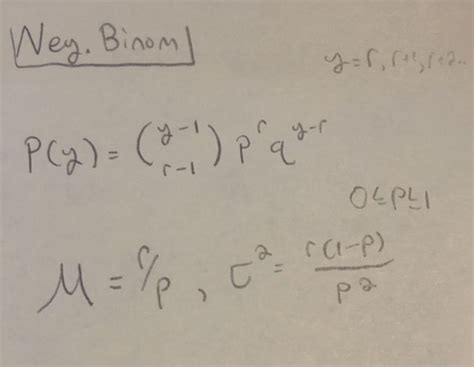 Neg. Binom
y=r, r+1, r+2..
P(y) = (y-1 r-1) p^r q^(y-r)
0≤p≤1
μ = r/p, σ² = r(1-p)/p²